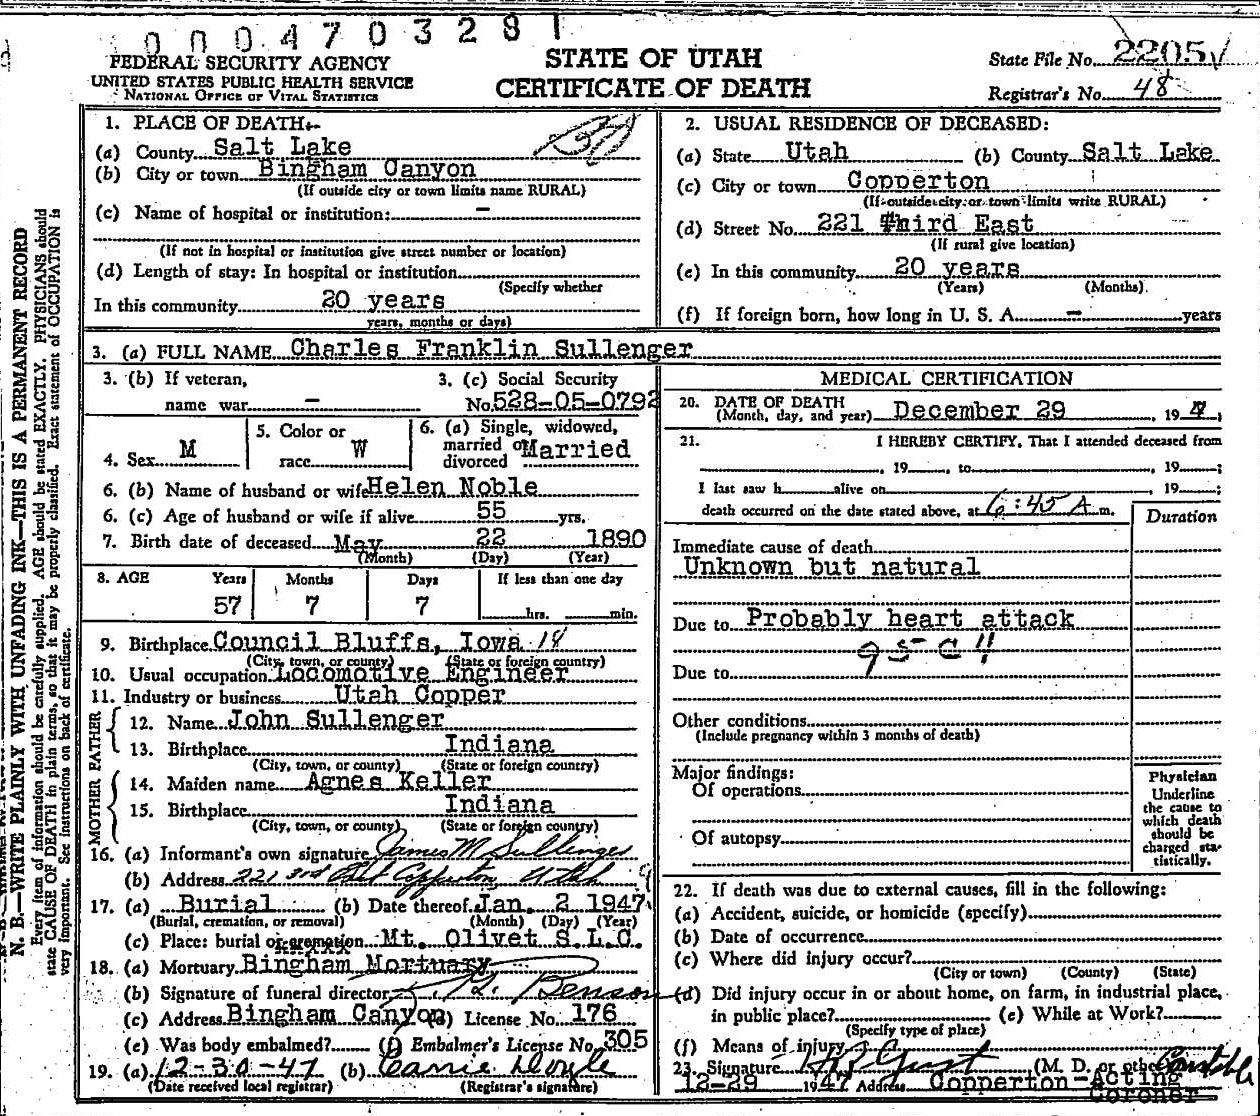 0004703281
FEDERAL SECURITY AGENCY
UNITED STATES PUBLIC HEALTH SERVICE
NATIONAL OFFICE OF VITAL STATISTICS
STATE OF UTAH
CERTIFICATE OF DEATH
State File No. 2205
Registrar's No. 48
N. B.—WRITE PLAINLY WITH UNFADING INK—THIS IS A PERMANENT RECORD
Every item of information should be carefully supplied. AGE should be stated EXACTLY. PHYSICIANS should
state CAUSE OF DEATH in plain terms, so that it may be properly classified. Exact statement of OCCUPATION is
very important. See instructions on back of certificate.
1. PLACE OF DEATH:
(a) County Salt Lake
(b) City or town Bingham Canyon
(If outside city or town limits name RURAL)
(c) Name of hospital or institution: -
(If not in hospital or institution give street number or location)
(d) Length of stay: In hospital or institution
(Specify whether
In this community 20 years
years, months or days)
2. USUAL RESIDENCE OF DECEASED:
(a) State Utah (b) County Salt Lake
(c) City or town Copperton
(If outside city or town limits write RURAL)
(d) Street No. 221 Third East
(If rural give location)
(e) In this community 20 years
(Years) (Months)
(f) If foreign born, how long in U. S. A. - years
3. (a) FULL NAME Charles Franklin Sullenger
3. (b) If veteran, name war -
3. (c) Social Security No. 528-05-0792
4. Sex M
5. Color or race W
6. (a) Single, widowed, married or divorced Married
6. (b) Name of husband or wife Helen Noble
6. (c) Age of husband or wife if alive 55 yrs.
7. Birth date of deceased May 22 1890
(Month) (Day) (Year)
8. AGE Years Months Days If less than one day
57 7 7 hrs. min.
9. Birthplace Council Bluffs, Iowa 18
(City, town, or county) (State or foreign country)
10. Usual occupation Locomotive Engineer
11. Industry or business Utah Copper
FATHER
12. Name John Sullenger
13. Birthplace Indiana
(City, town, or county) (State or foreign country)
MOTHER
14. Maiden name Agnes Keller
15. Birthplace Indiana
(City, town, or county) (State or foreign country)
16. (a) Informant's own signature James M Sullenger
(b) Address 221 3rd East Copperton Utah
17. (a) Burial (b) Date thereof Jan. 2 1947
(Burial, cremation, or removal) (Month) (Day) (Year)
(c) Place: burial or cremation Mt. Olivet S.L.C.
18. (a) Mortuary Bingham Mortuary
(b) Signature of funeral director Benson
(c) Address Bingham Canyon (d) License No. 176
(e) Was body embalmed? (f) Embalmer's License No. 305
19. (a) 12-30-47 (b) Carrie Doyle
(Date received local registrar) (Registrar's signature)
MEDICAL CERTIFICATION
20. DATE OF DEATH
(Month, day, and year) December 29, 1947;
21. I HEREBY CERTIFY, That I attended deceased from
, 19 , to , 19 ;
I last saw h alive on , 19 ;
death occurred on the date stated above, at 6:45 A m.
Duration
Immediate cause of death
Unknown but natural
Due to Probably heart attack
95 C!!
Due to
Other conditions
(Include pregnancy within 3 months of death)
Major findings:
Of operations
Of autopsy
Physician
Underline
the cause to
which death
should be
charged sta-
tistically.
22. If death was due to external causes, fill in the following:
(a) Accident, suicide, or homicide (specify)
(b) Date of occurrence
(c) Where did injury occur?
(City or town) (County) (State)
(d) Did injury occur in or about home, on farm, in industrial place,
in public place? (e) While at Work?
(Specify type of place)
(f) Means of injury
23. Signature (M. D. or other) Constable
12-29 1947 Address Copperton-Acting
Coroner